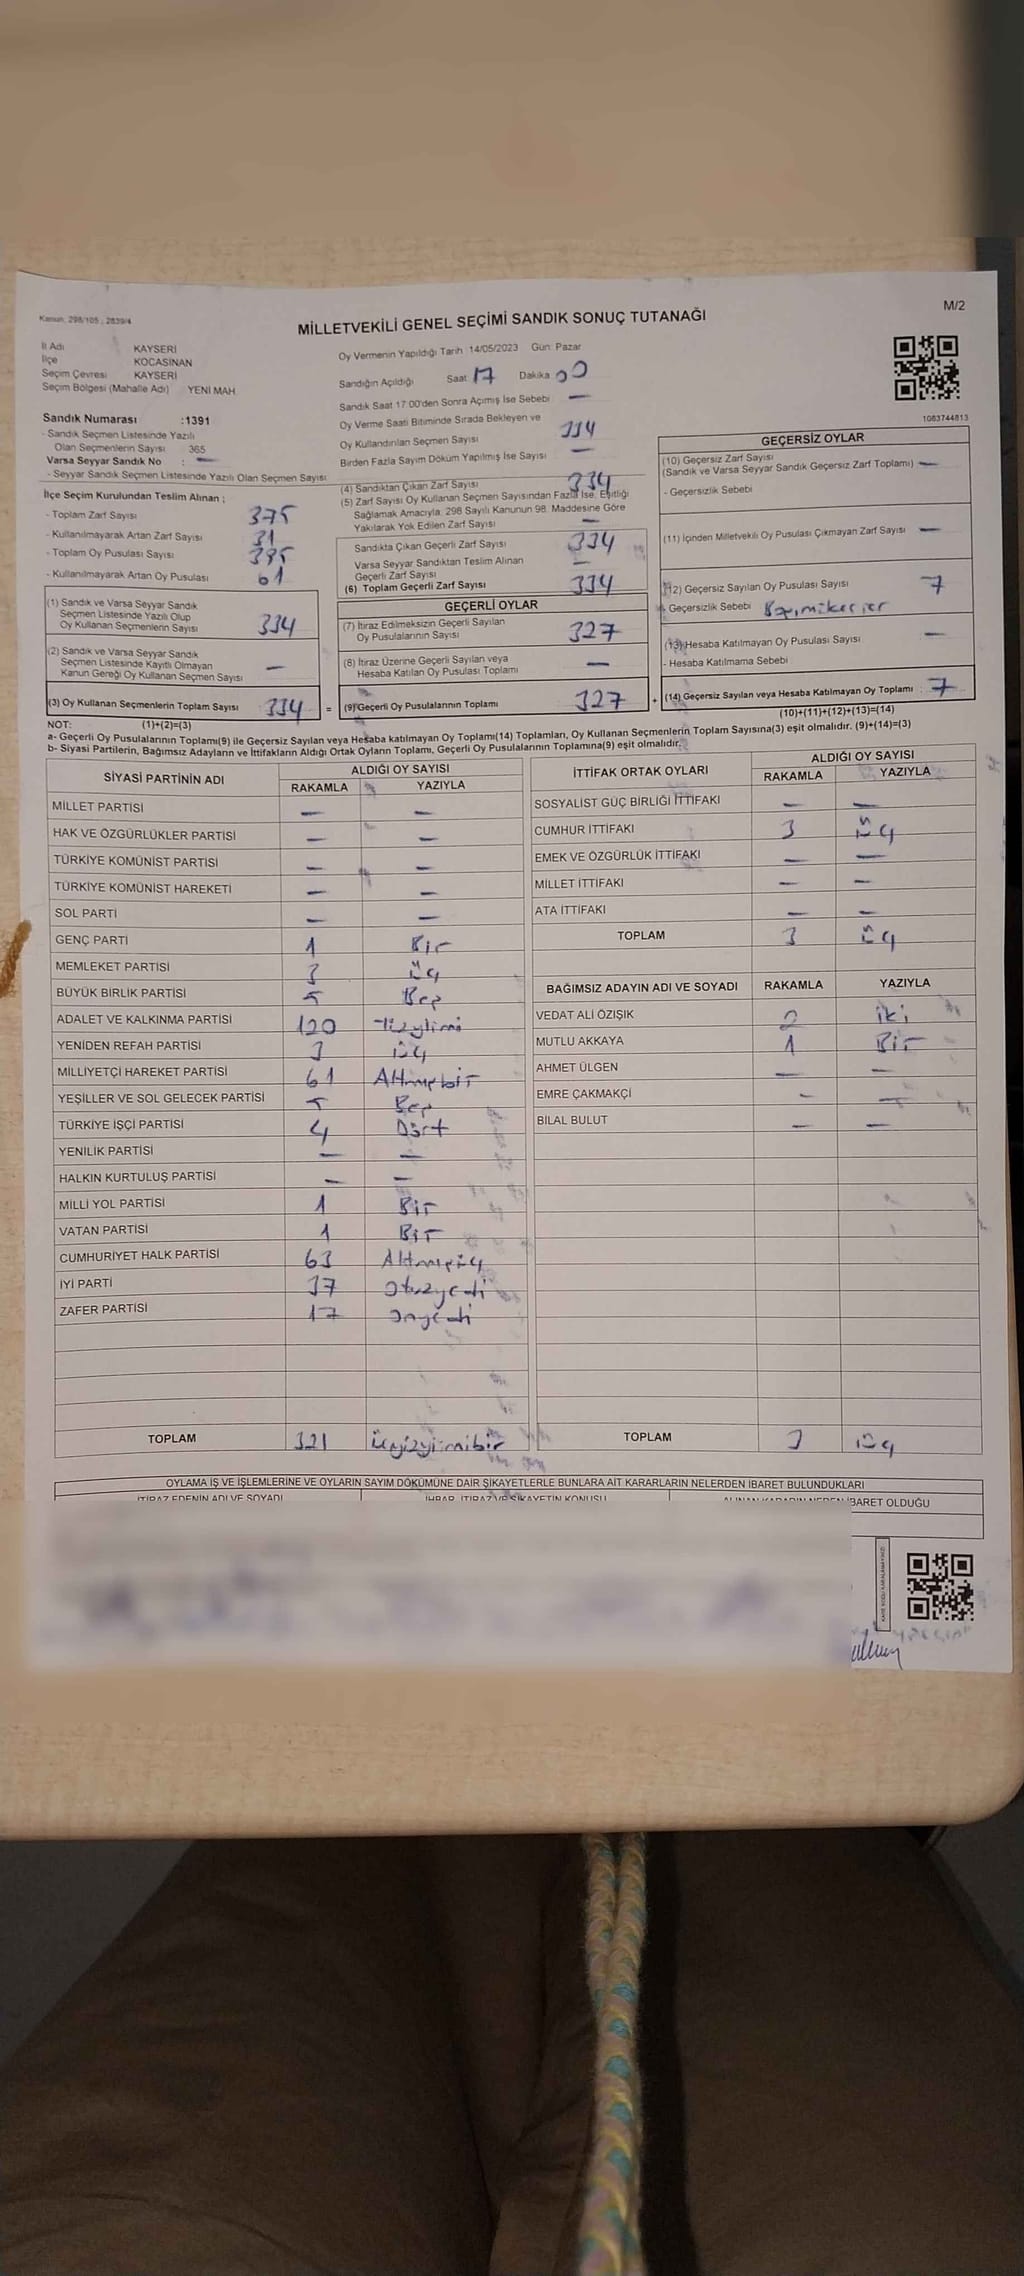 Kanun, 298/105 ; 2839/4
M/2
MİLLETVEKİLİ GENEL SEÇİMİ SANDIK SONUÇ TUTANAĞI
İl Adı KAYSERİ
İlçe KOCASİNAN
Seçim Çevresi KAYSERİ
Seçim Bölgesi (Mahalle Adı) YENİ MAH
Sandık Numarası :1391
- Sandık Seçmen Listesinde Yazılı
Olan Seçmenlerin Sayısı 365
Varsa Seyyar Sandık No : —
- Seyyar Sandık Seçmen Listesinde Yazılı Olan Seçmen Sayısı
İlçe Seçim Kurulundan Teslim Alınan ;
- Toplam Zarf Sayısı 375
- Kullanılmayarak Artan Zarf Sayısı 31
- Toplam Oy Pusulası Sayısı
- Kullanılmayarak Artan Oy Pusulası 61
(1) Sandık ve Varsa Seyyar Sandık
Seçmen Listesinde Yazılı Olup
Oy Kullanan Seçmenlerin Sayısı 334
(2) Sandık ve Varsa Seyyar Sandık
Seçmen Listesinde Kayıtlı Olmayan
Kanun Gereği Oy Kullanan Seçmen Sayısı —
(3) Oy Kullanan Seçmenlerin Toplam Sayısı 334 =
Oy Vermenin Yapıldığı Tarih 14/05/2023 Gün: Pazar
Sandığın Açıldığı Saat 17 Dakika 00
Sandık Saat 17:00'den Sonra Açımış İse Sebebi —
Oy Verme Saati Bitiminde Sırada Bekleyen ve
Oy Kullandırılan Seçmen Sayısı 334
Birden Fazla Sayım Döküm Yapılmış İse Sayısı —
(4) Sandıktan Çıkan Zarf Sayısı 334
(5) Zarf Sayısı Oy Kullanan Seçmen Sayısından Fazla İse, Eşitliği
Sağlamak Amacıyla, 298 Sayılı Kanunun 98. Maddesine Göre
Yakılarak Yok Edilen Zarf Sayısı —
Sandıkta Çıkan Geçerli Zarf Sayısı 334
Varsa Seyyar Sandıktan Teslim Alınan
Geçerli Zarf Sayısı —
(6) Toplam Geçerli Zarf Sayısı 334
GEÇERLİ OYLAR
(7) İtiraz Edilmeksizin Geçerli Sayılan
Oy Pusulalarının Sayısı 327
(8) İtiraz Üzerine Geçerli Sayılan veya
Hesaba Katılan Oy Pusulası Toplamı —
(9)Geçerli Oy Pusulalarının Toplamı 327 +
1063744813
GEÇERSİZ OYLAR
(10) Geçersiz Zarf Sayısı
(Sandık ve Varsa Seyyar Sandık Geçersiz Zarf Toplamı) —
- Geçersizlik Sebebi
(11) İçinden Milletvekili Oy Pusulası Çıkmayan Zarf Sayısı —
(12) Geçersiz Sayılan Oy Pusulası Sayısı 7
- Geçersizlik Sebebi
(13) Hesaba Katılmayan Oy Pusulası Sayısı —
- Hesaba Katılmama Sebebi
(14) Geçersiz Sayılan veya Hesaba Katılmayan Oy Toplamı : 7
NOT: (1)+(2)=(3)
(10)+(11)+(12)+(13)=(14)
a- Geçerli Oy Pusulalarının Toplamı(9) ile Geçersiz Sayılan veya Hesaba katılmayan Oy Toplamı(14) Toplamları, Oy Kullanan Seçmenlerin Toplam Sayısına(3) eşit olmalıdır. (9)+(14)=(3)
b- Siyasi Partilerin, Bağımsız Adayların ve İttifakların Aldığı Ortak Oyların Toplamı, Geçerli Oy Pusulalarının Toplamına(9) eşit olmalıdır.
SİYASİ PARTİNİN ADI ALDIĞI OY SAYISI
RAKAMLA YAZIYLA
MİLLET PARTİSİ — —
HAK VE ÖZGÜRLÜKLER PARTİSİ — —
TÜRKİYE KOMÜNİST PARTİSİ — —
TÜRKİYE KOMÜNİST HAREKETİ — —
SOL PARTİ — —
GENÇ PARTİ 1 Bir
MEMLEKET PARTİSİ 3 Üç
BÜYÜK BİRLİK PARTİSİ 5 Beş
ADALET VE KALKINMA PARTİSİ 120 Yüzyirmi
YENİDEN REFAH PARTİSİ 3 Üç
MİLLİYETÇİ HAREKET PARTİSİ 61 Altmışbir
YEŞİLLER VE SOL GELECEK PARTİSİ 5 Beş
TÜRKİYE İŞÇİ PARTİSİ 4 Dört
YENİLİK PARTİSİ — —
HALKIN KURTULUŞ PARTİSİ — —
MİLLİ YOL PARTİSİ 1 Bir
VATAN PARTİSİ 1 Bir
CUMHURİYET HALK PARTİSİ 63 Altmışüç
İYİ PARTİ 37 Otuzyedi
ZAFER PARTİSİ 17 Onyedi
TOPLAM 321 Üçyüzyirmibir
İTTİFAK ORTAK OYLARI ALDIĞI OY SAYISI
RAKAMLA YAZIYLA
SOSYALİST GÜÇ BİRLİĞİ İTTİFAKI — —
CUMHUR İTTİFAKI 3 Üç
EMEK VE ÖZGÜRLÜK İTTİFAKI — —
MİLLET İTTİFAKI — —
ATA İTTİFAKI — —
TOPLAM 3 Üç
BAĞIMSIZ ADAYIN ADI VE SOYADI RAKAMLA YAZIYLA
VEDAT ALİ ÖZIŞIK 2 iki
MUTLU AKKAYA 1 Bir
AHMET ÜLGEN — —
EMRE ÇAKMAKÇİ — —
BİLAL BULUT — —
TOPLAM 3 Üç
OYLAMA İŞ VE İŞLEMLERİNE VE OYLARIN SAYIM DÖKÜMÜNE DAİR ŞİKAYETLERLE BUNLARA AİT KARARLARIN NELERDEN İBARET BULUNDUKLARI
İTİRAZ EDENİN ADI VE SOYADI İHBAR, İTİRAZ VE ŞİKAYETİN KONUSU ALINAN KARARIN NEDEN İBARET OLDUĞU